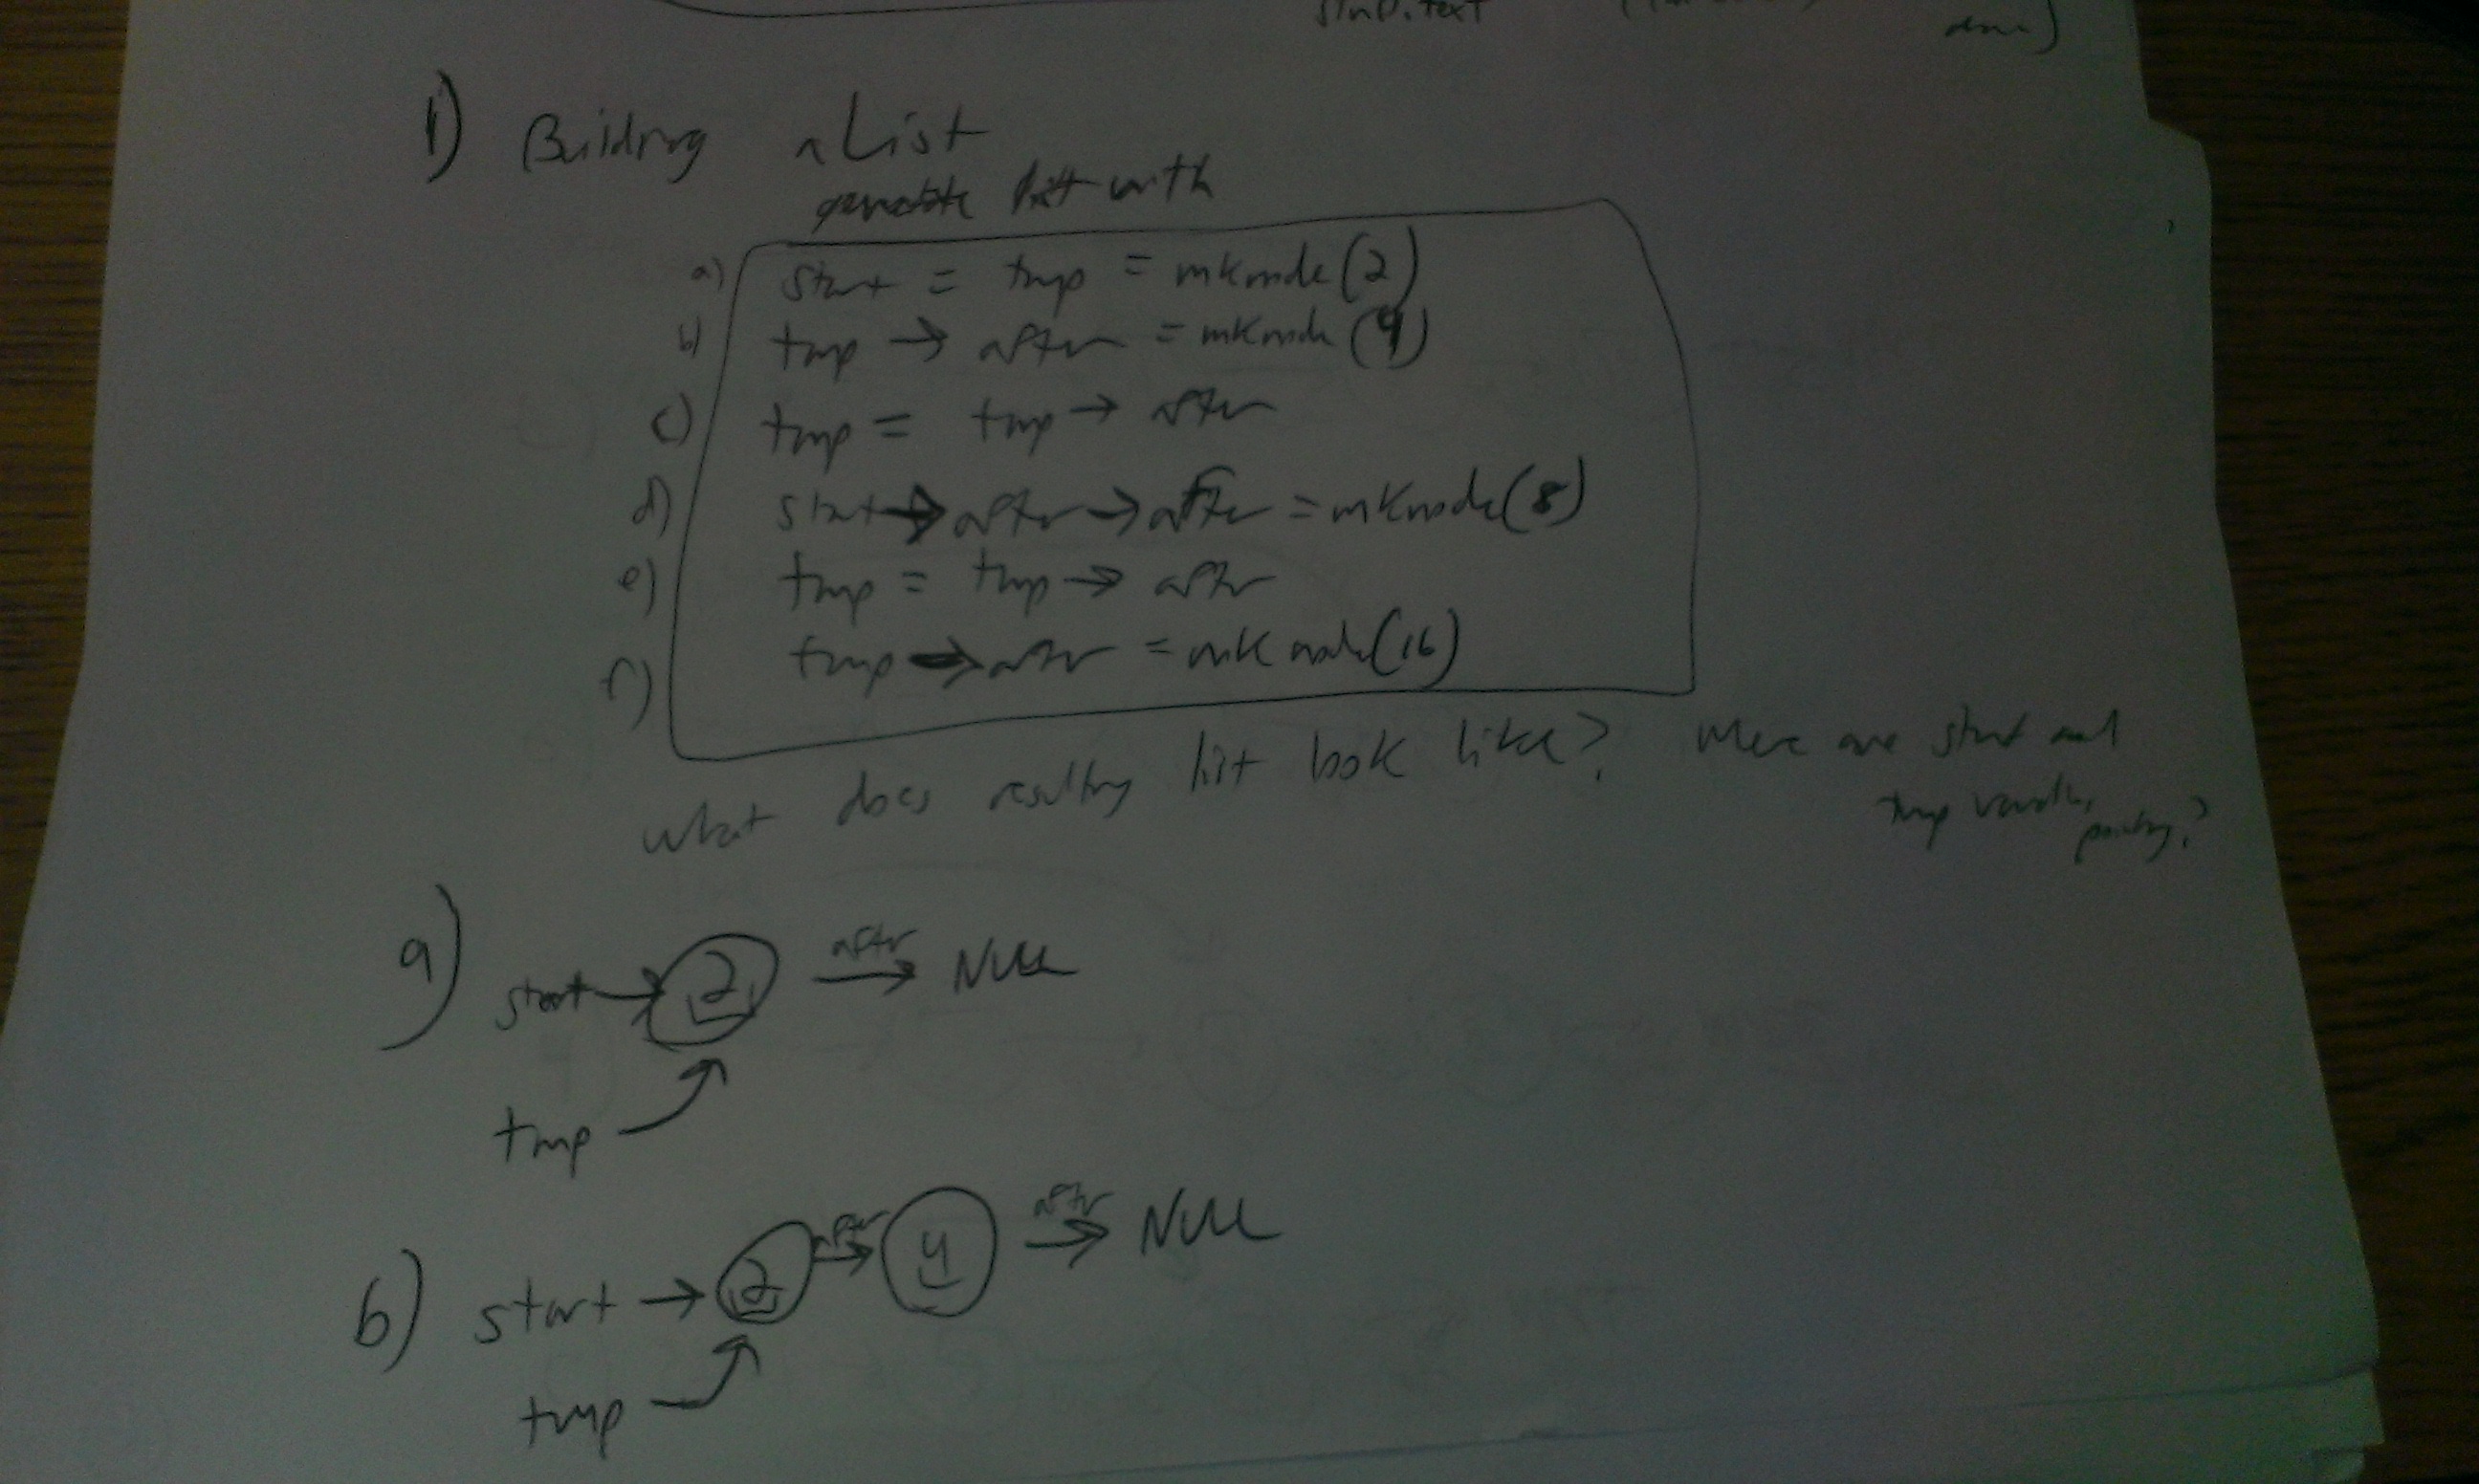 stub.text
done)
1) Building a List
generate list with
a) start = tmp = mknode(2)
b) tmp → after = mknode(4)
c) tmp = tmp → after
d) start → after → after = mknode(8)
e) tmp = tmp → after
f) tmp → after = mknode(16)
what does resulting list look like? Where are start and
tmp variables
pointing?
a) start → 2 after → NULL
tmp
b) start → 2 after → 4 after → NULL
tmp